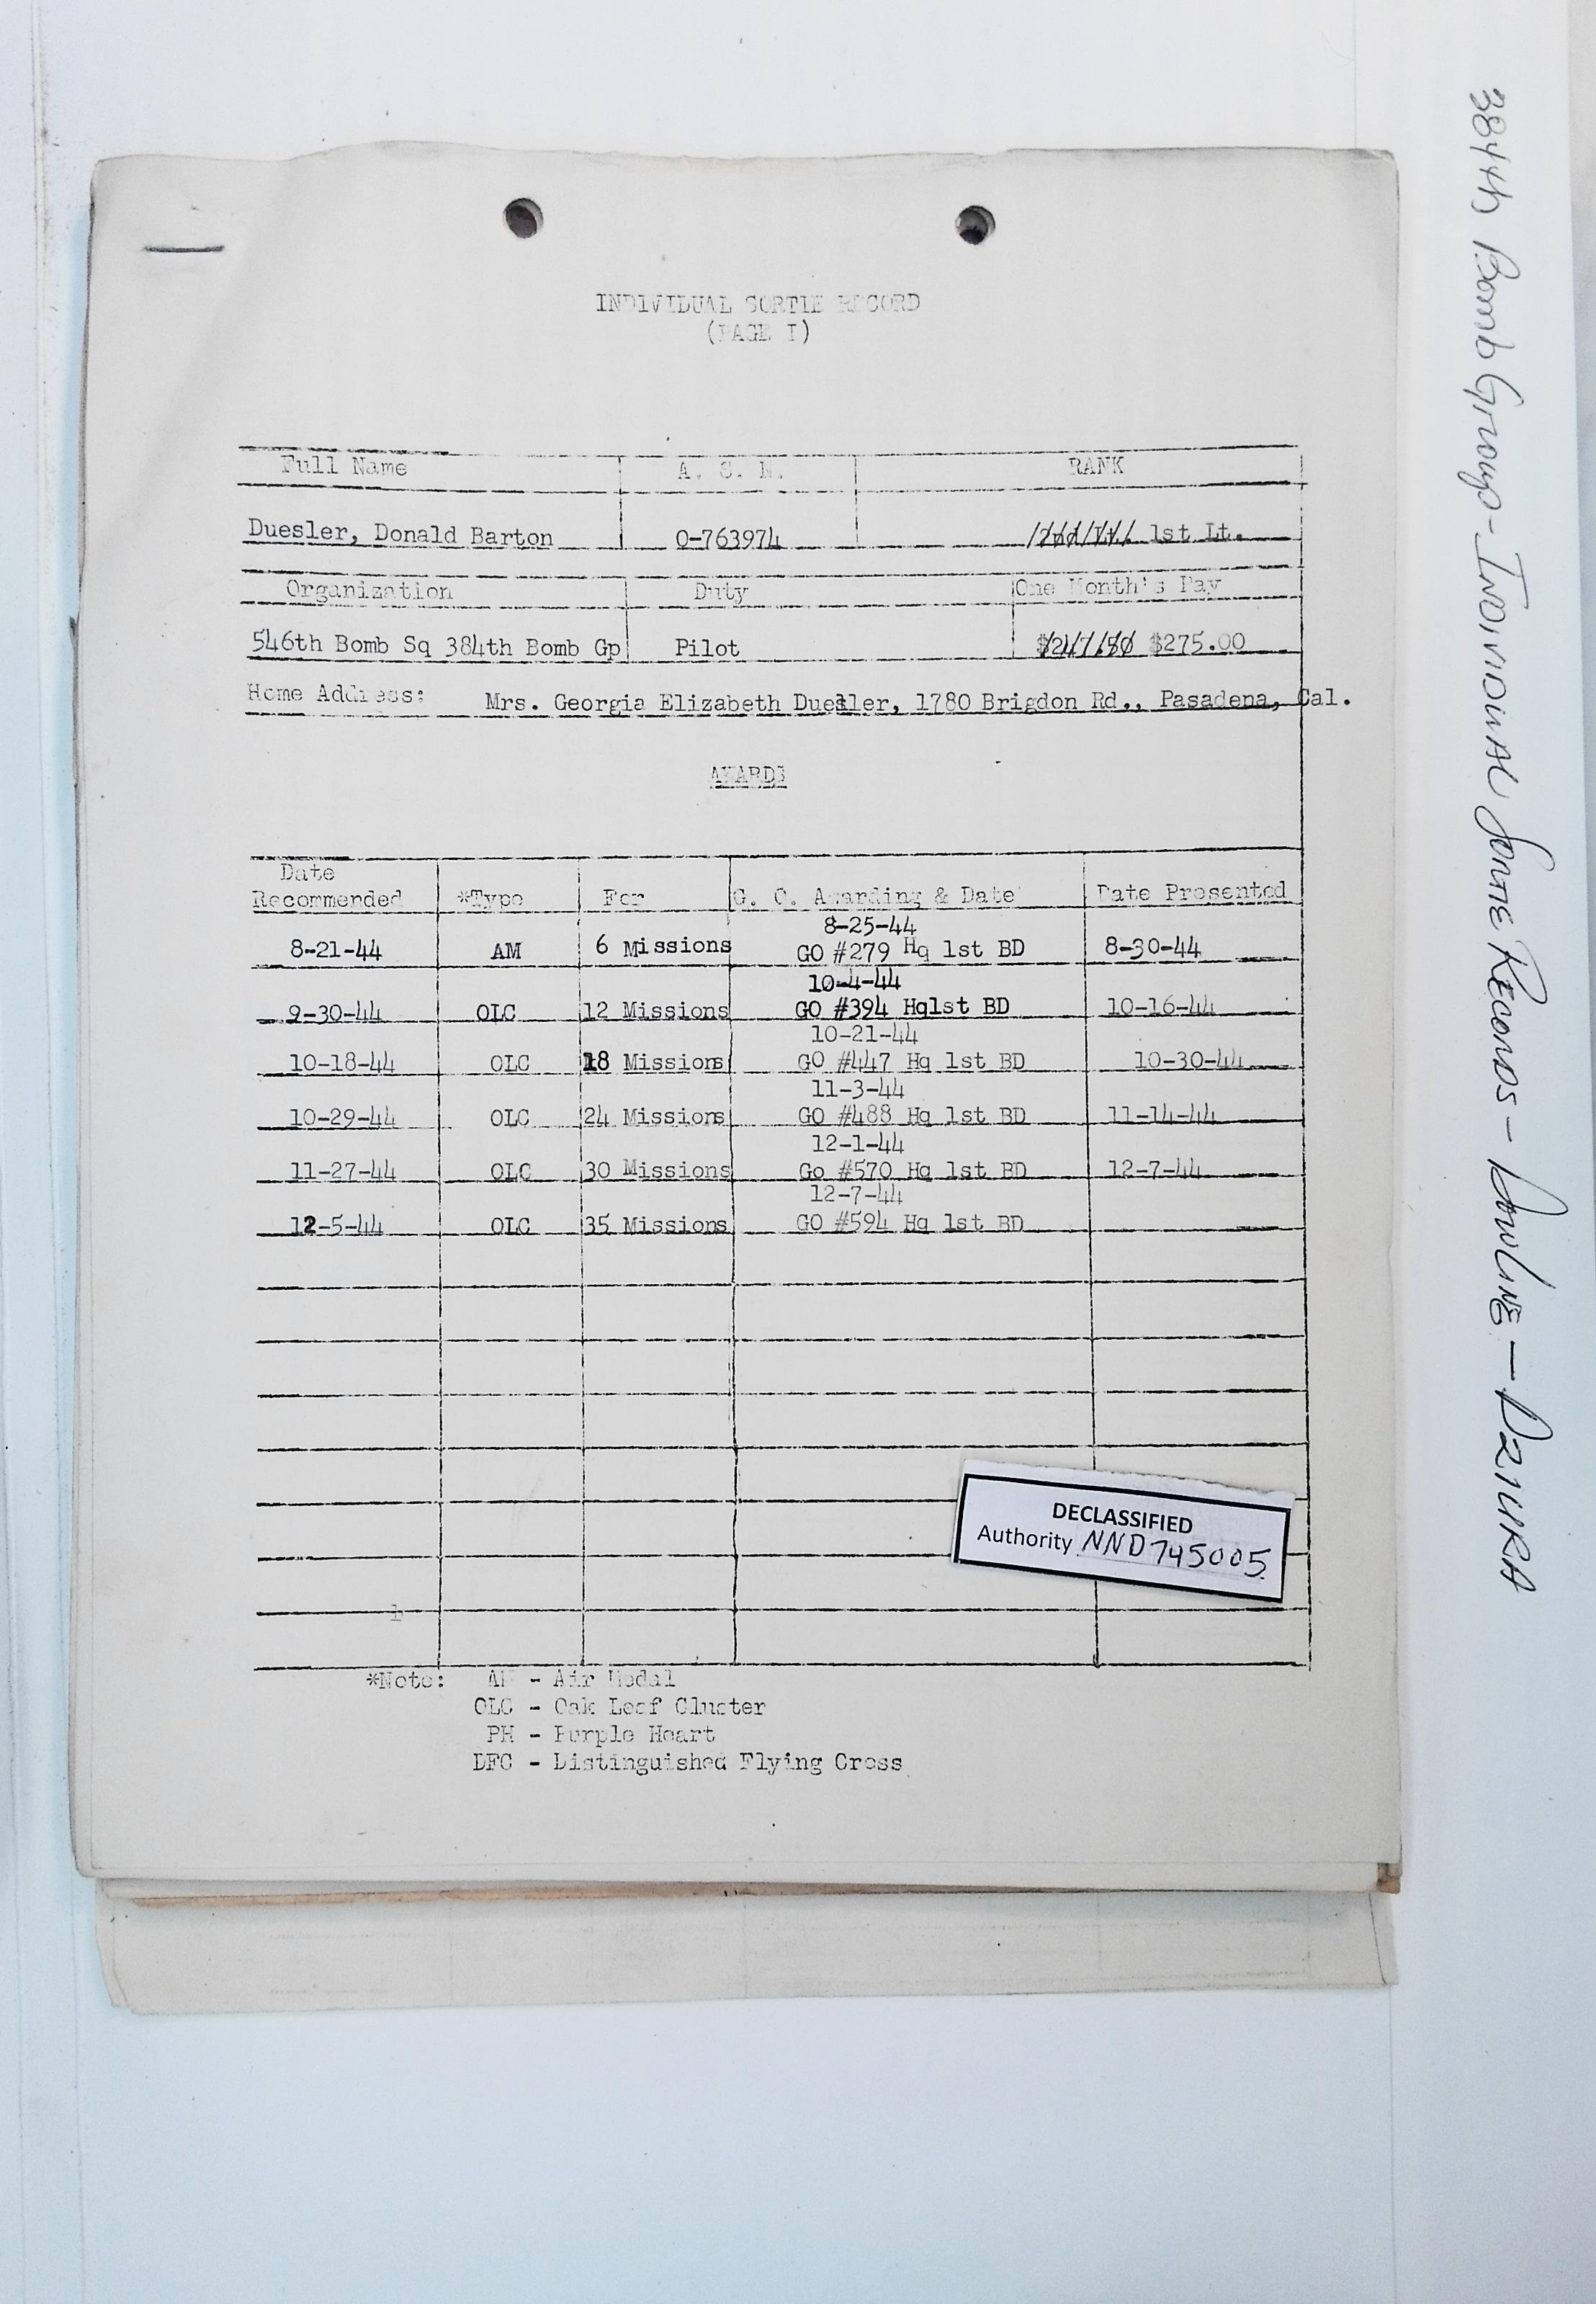 INDIVIDUAL SORTIE RECORD
(PAGE I)
Full Name A. S. N. RANK
Duesler, Donald Barton 0-763974 1st Lt.
Organization Duty One Month's Pay
546th Bomb Sq 384th Bomb Gp Pilot $275.00
Home Address: Mrs. Georgia Elizabeth Duesler, 1780 Brigdon Rd., Pasadena, Cal.
AWARDS
Date
Recommended *Type For G. O. Awarding & Date Date Presented
8-25-44
8-21-44 AM 6 Missions GO #279 Hq 1st BD 8-30-44
10-4-44
9-30-44 OLC 12 Missions GO #394 Hq1st BD 10-16-44
10-21-44
10-18-44 OLC 18 Missions GO #447 Hq 1st BD 10-30-44
11-3-44
10-29-44 OLC 24 Missions GO #488 Hq 1st BD 11-14-44
12-1-44
11-27-44 OLC 30 Missions Go #570 Hq 1st BD 12-7-44
12-7-44
12-5-44 OLC 35 Missions GO #594 Hq 1st BD
DECLASSIFIED
Authority NND745005
1
*Note: AM - Air Medal
OLC - Oak Leaf Cluster
PH - Purple Heart
DFC - Distinguished Flying Cross
384th Bomb Group - INDIVIDUAL SORTIE RECORDS - DOWLING - DZIURA